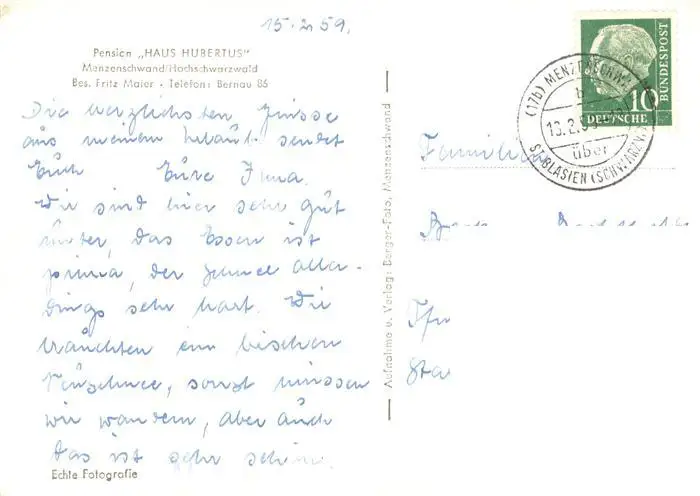 15.2.59.
Pension „HAUS HUBERTUS"
Menzenschwand/Hochschwarzwald
Bes. Fritz Maier · Telefon: Bernau 86
Die herzlichsten Grüsse
aus meinem Urlaub sendet
Euch Eure Irma.
Wir sind hier sehr gut
unter, das Essen ist
prima, der Schnee aller-
dings sehr hart. Wir
bräuchten ein bischen
Neuschnee, sonst müssen
wir wandern, aber auch
das ist sehr schön.
Echte Fotografie
Aufnahme u. Verlag: Berger-Foto, Menzenschwand
DEUTSCHE
BUNDESPOST
10
(17b) MENZENSCHWAND
b
über
ST. BLASIEN (SCHWARZW.)
Familie